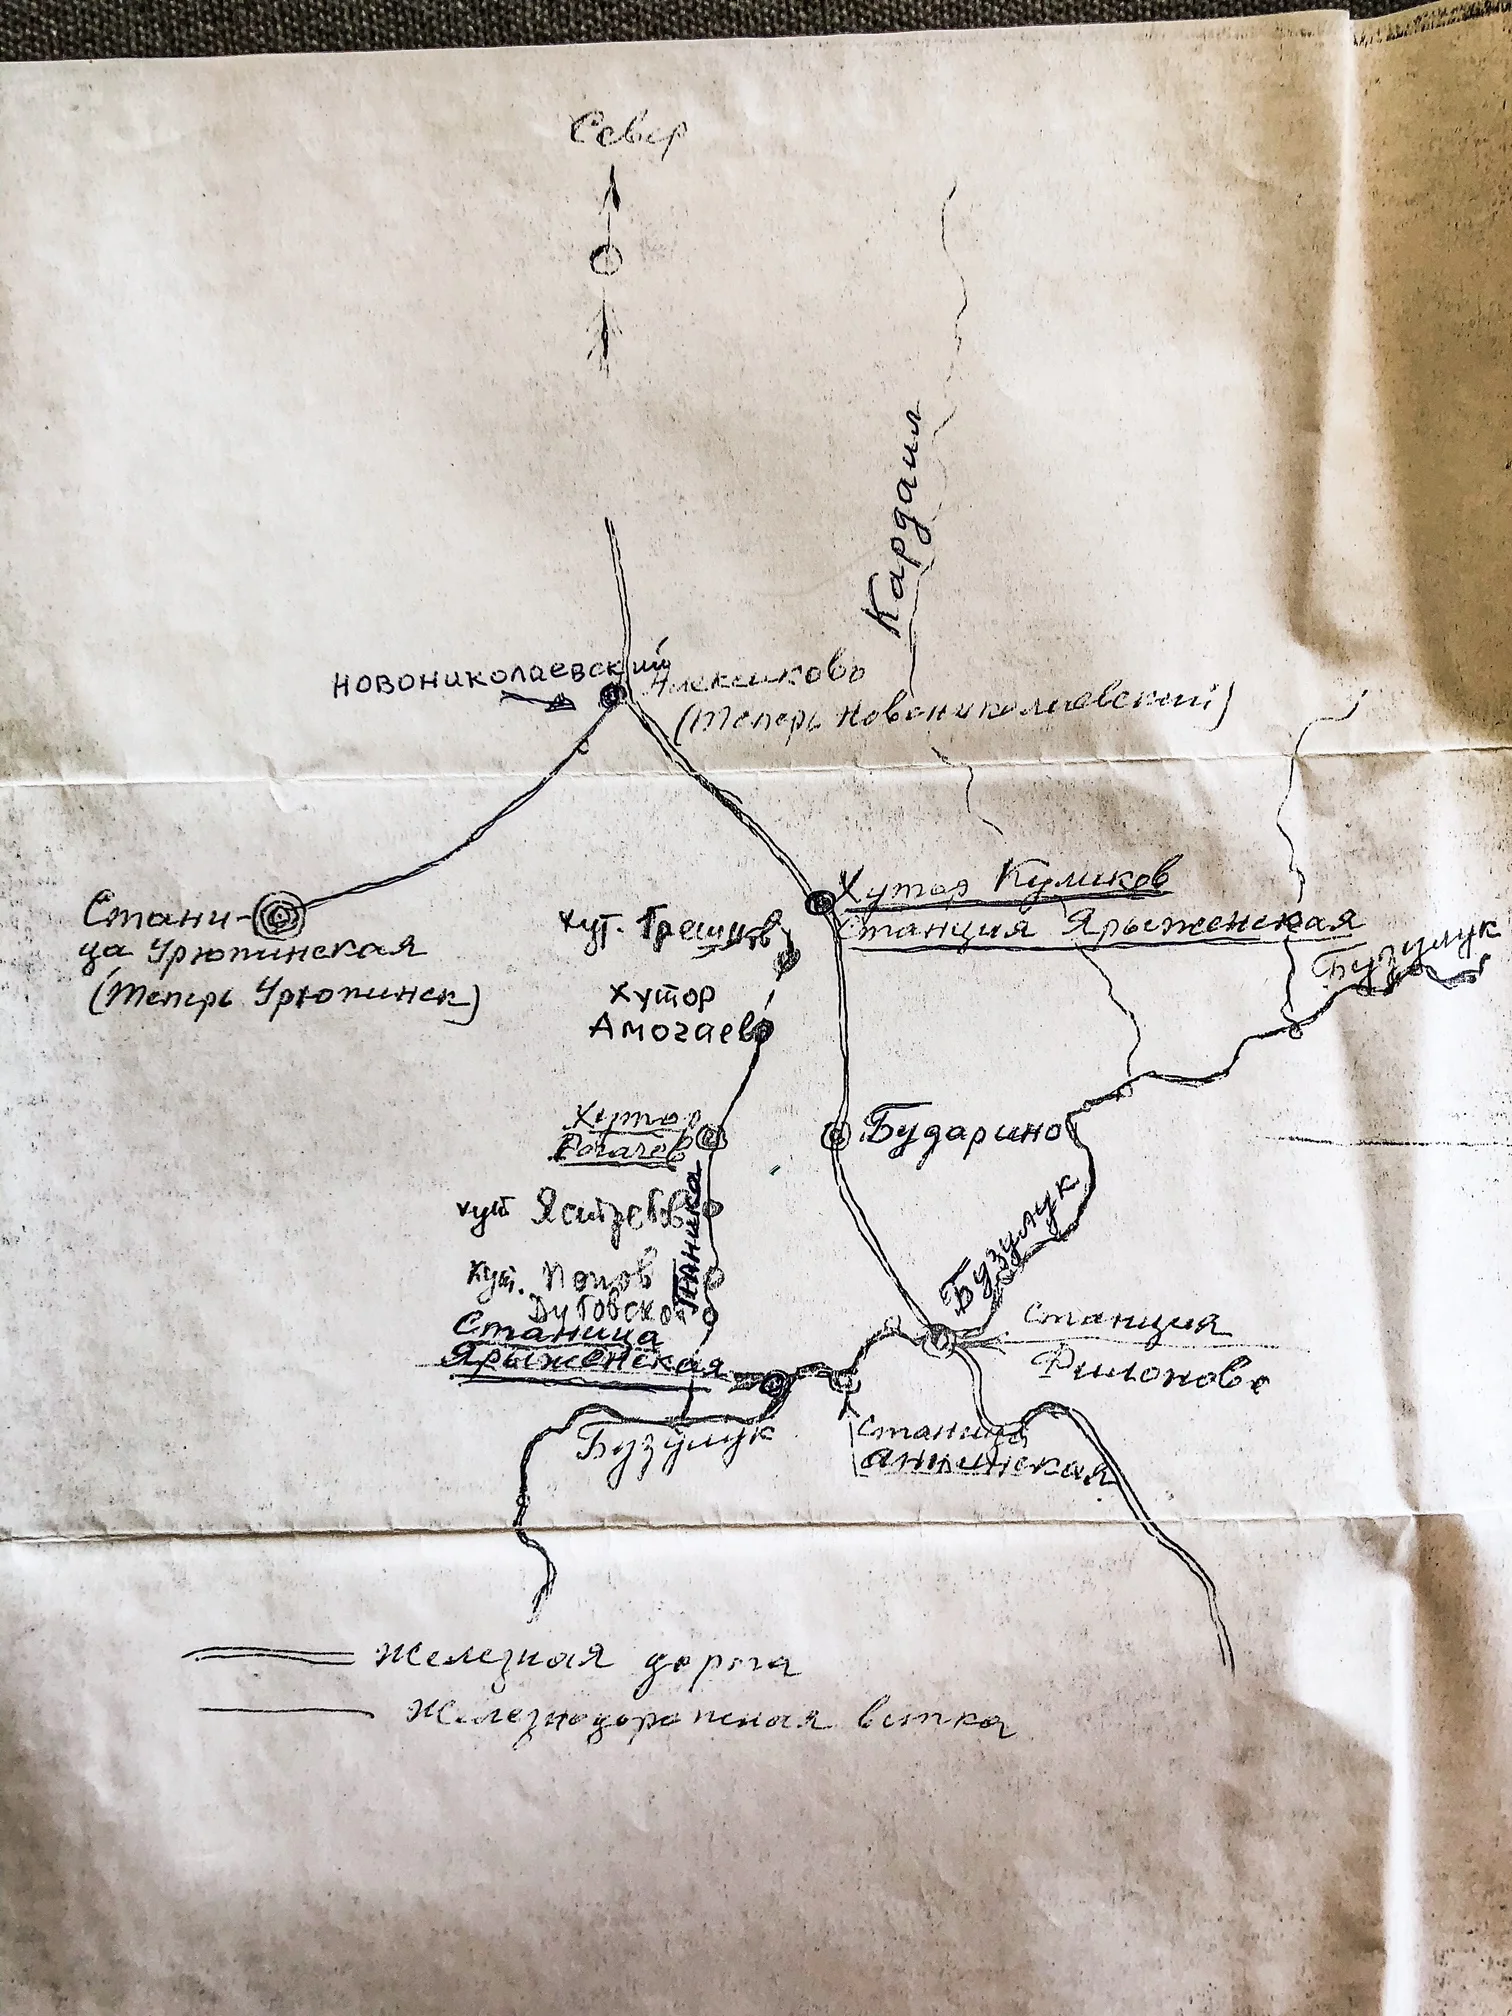 Север
Кардаил
новониколаевский
Алексиково
(теперь Новониколаевский)
Хутор Куликов
Станция Ярыженская
Стани-
ца Урюпинская
(теперь Урюпинск)
хут.
Бузулук
Хутор
Амочаев
Хутор
Рогачев
Бударино
хут Ястребов
Паника
Бузулук
хут. Попов
Дубовской
Станица
Ярыженская
Станция
Филоново
Бузулук
Станица
Аннинская
Железная дорога
Железнодорожная ветка